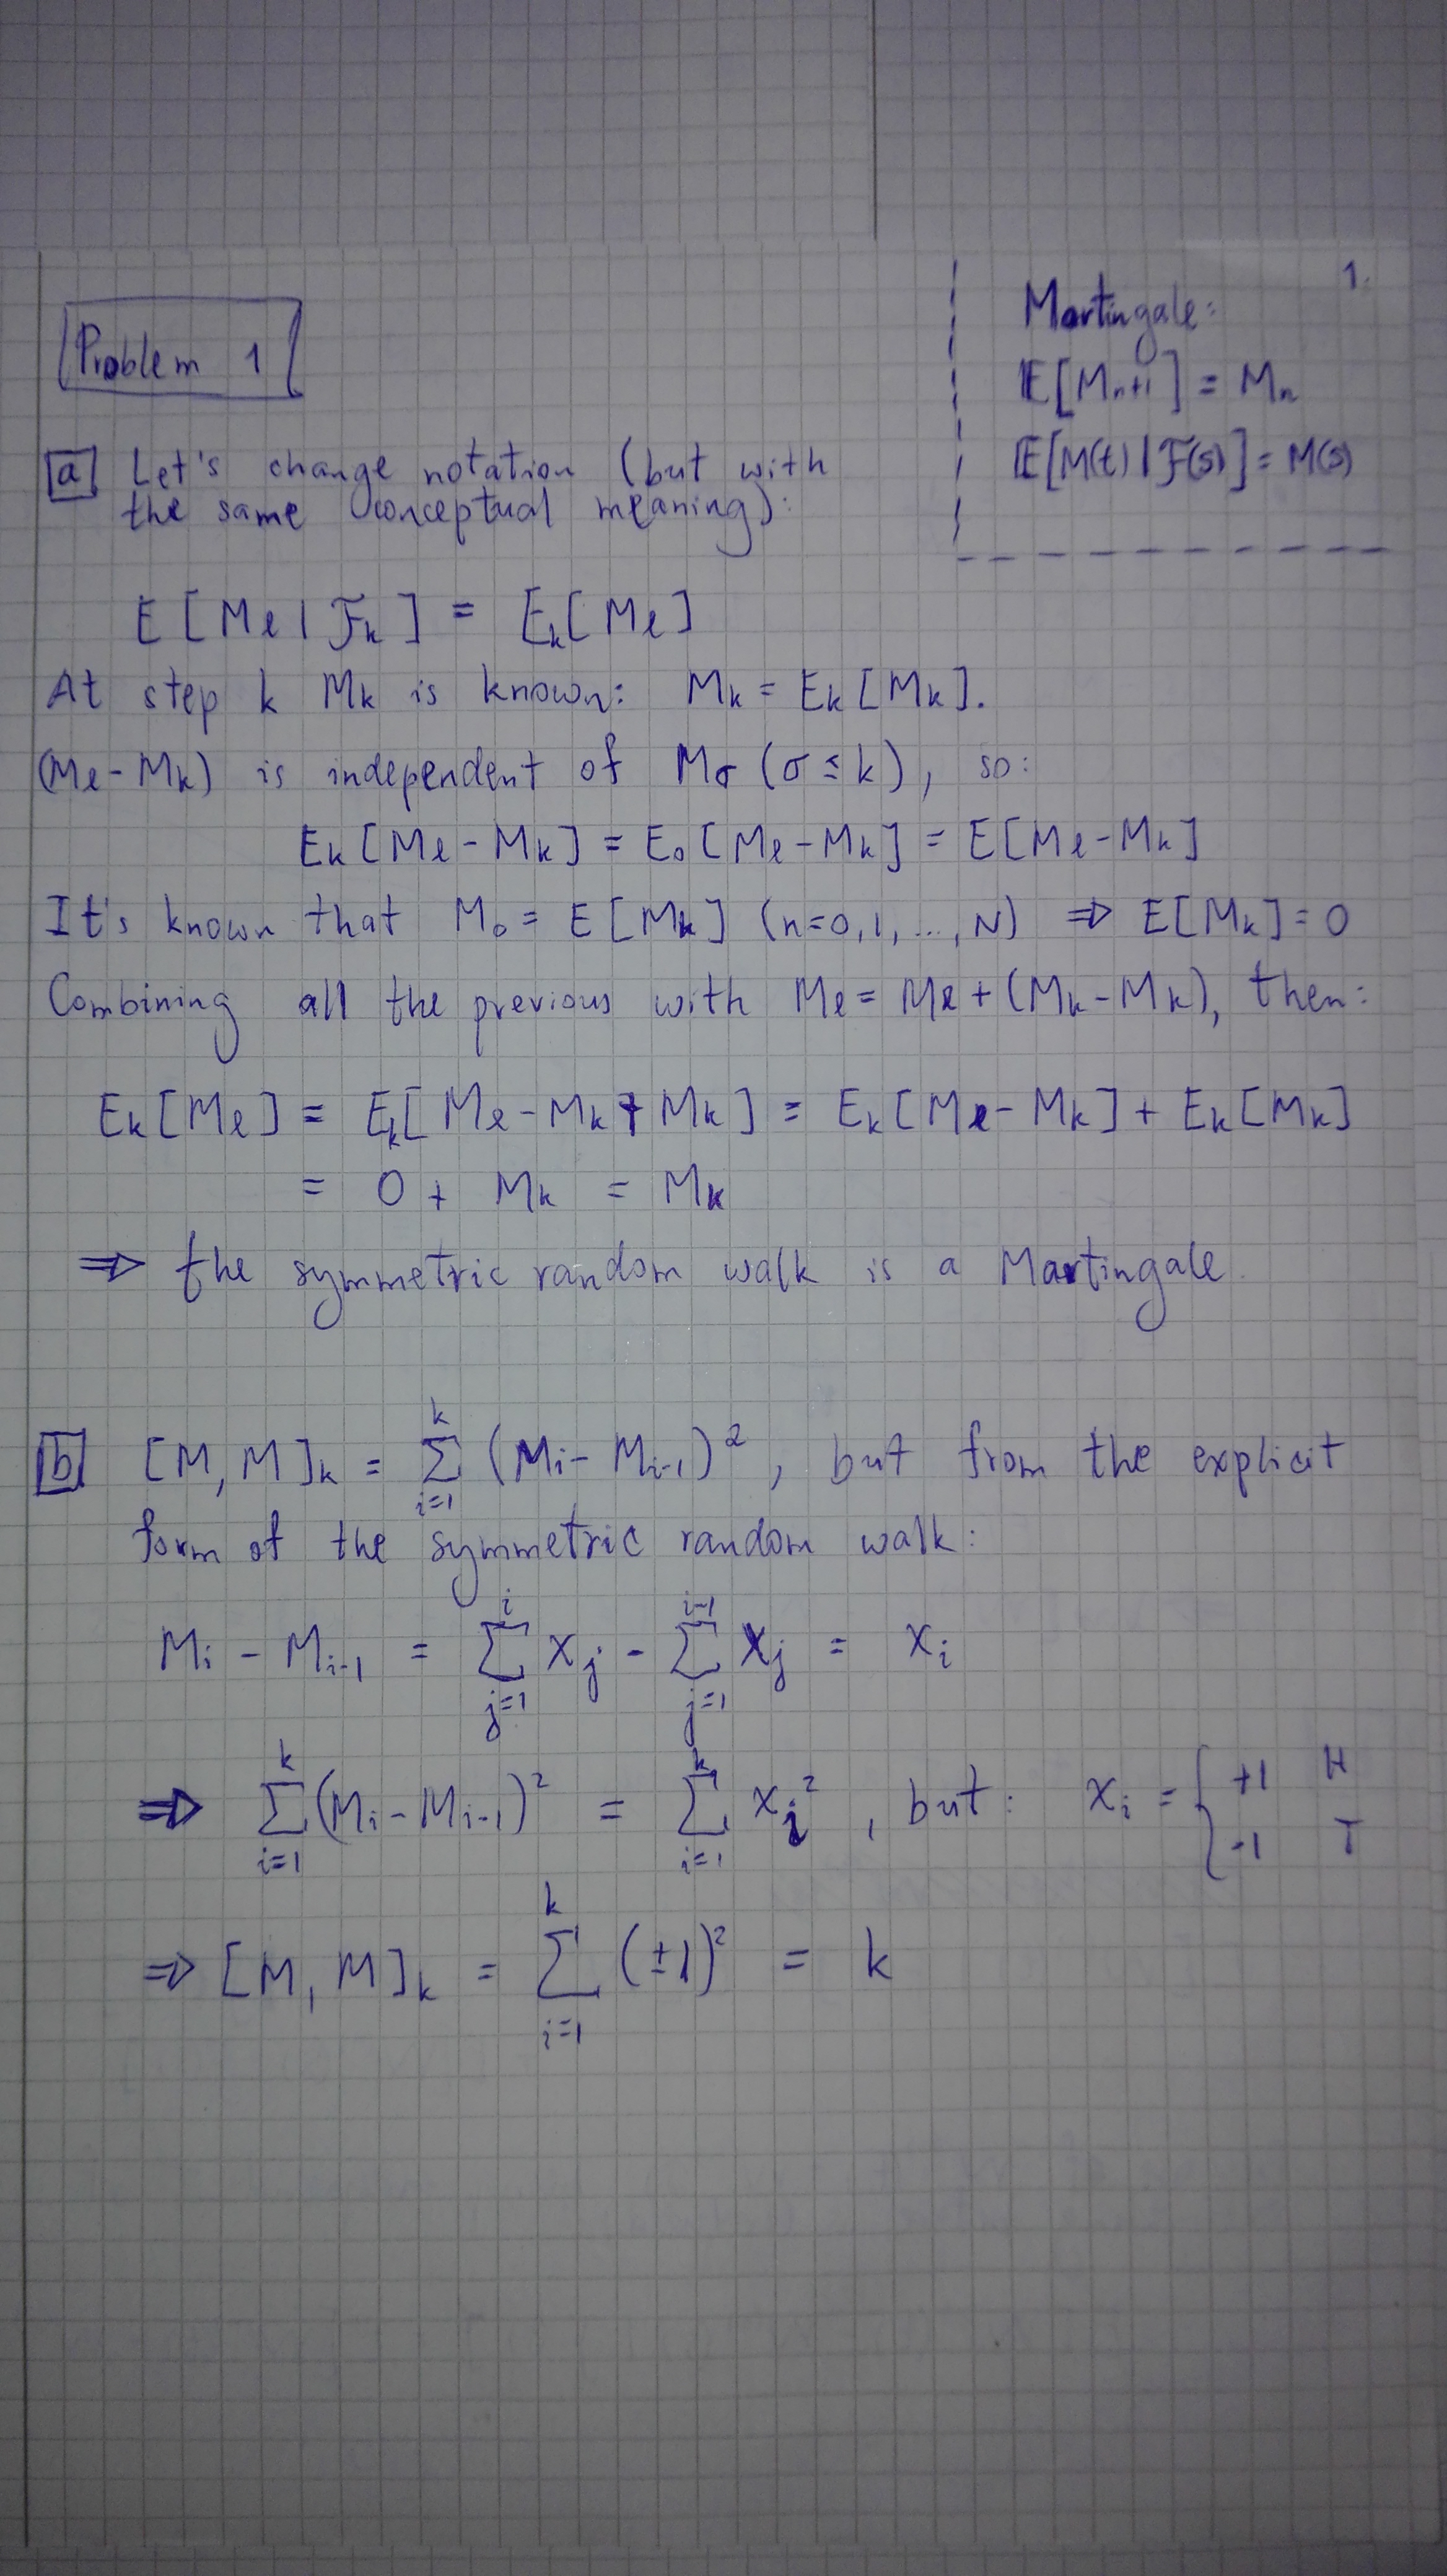 1.
Martingale:
𝔼[Mₙ₊₁] = Mₙ
𝔼[M(t) | ℱ(s)] = M(s)
Problem 1
a Let's change notation (but with
the same conceptual meaning):
E[Mℓ | ℱₖ] = Eₖ[Mℓ]
At step k Mₖ is known: Mₖ = Eₖ[Mₖ].
(Mℓ - Mₖ) is independent of M_σ (σ ≤ k), so:
Eₖ[Mℓ - Mₖ] = E₀[Mℓ - Mₖ] = E[Mℓ - Mₖ]
It's known that M₀ = E[Mₖ] (n=0,1,...,N) ⇒ E[Mₖ] = 0
Combining all the previous with Mℓ = Mℓ + (Mₖ - Mₖ), then:
Eₖ[Mℓ] = Eₖ[Mℓ - Mₖ + Mₖ] = Eₖ[Mℓ - Mₖ] + Eₖ[Mₖ]
= 0 + Mₖ = Mₖ
⇒ the symmetric random walk is a Martingale
b [M, M]ₖ = ∑_{i=1}^{k} (Mᵢ - Mᵢ₋₁)², but from the explicit
form of the symmetric random walk:
Mᵢ - Mᵢ₋₁ = ∑_{j=1}^{i} xⱼ - ∑_{j=1}^{i-1} xⱼ = xᵢ
⇒ ∑_{i=1}^{k} (Mᵢ - Mᵢ₋₁)² = ∑_{i=1}^{k} xᵢ², but: xᵢ = { +1 H
-1 T
⇒ [M, M]ₖ = ∑_{i=1}^{k} (±1)² = k